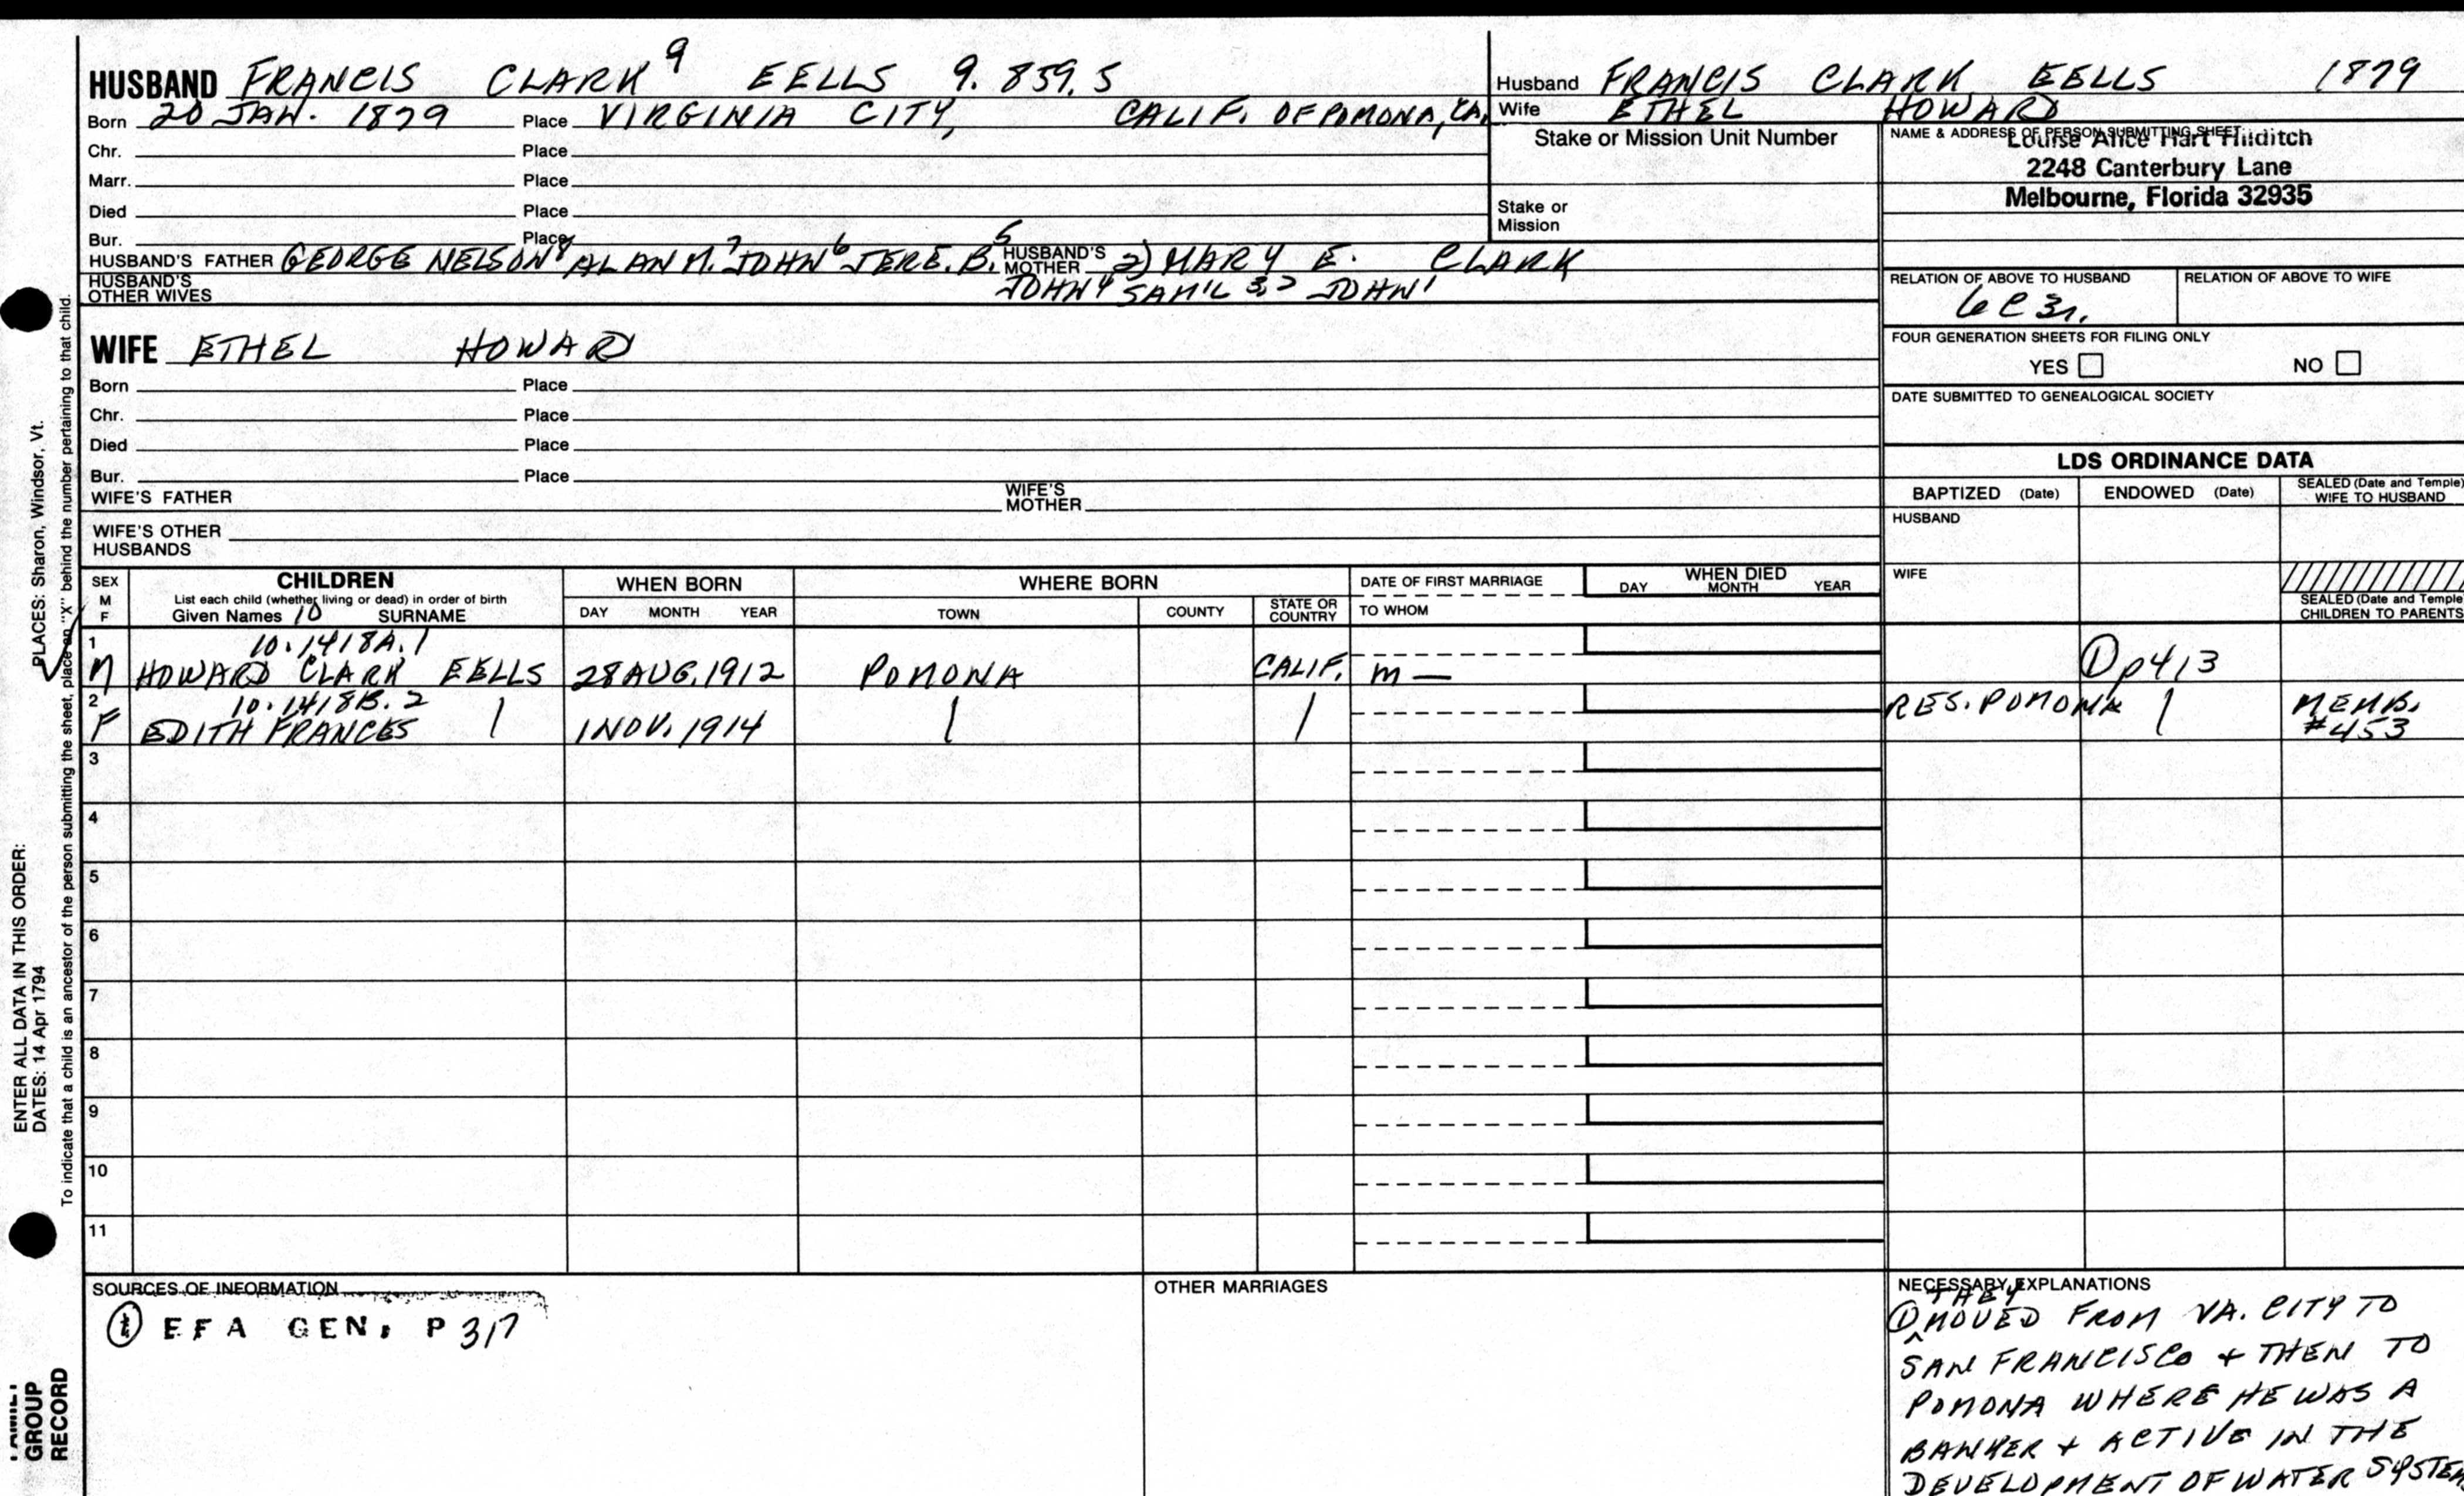 HUSBAND FRANCIS CLARK⁹ EELLS 9.859.5
Born 20 JAN. 1879 Place VIRGINIA CITY, CALIF. OF POMONA, CA.
Chr. Place
Marr. Place
Died Place
Bur. Place
HUSBAND'S FATHER GEORGE NELSON⁸ ALAN M.⁷ JOHN⁶ JERE. B.⁵ HUSBAND'S MOTHER 2) MARY E. CLARK
HUSBAND'S OTHER WIVES JOHN⁴ SAM'L 3,2 JOHN¹
WIFE ETHEL HOWARD
Born Place
Chr. Place
Died Place
Bur. Place
WIFE'S FATHER WIFE'S MOTHER
WIFE'S OTHER HUSBANDS
Husband FRANCIS CLARK EELLS 1879
Wife ETHEL HOWARD
Stake or Mission Unit Number
Stake or Mission
NAME & ADDRESS OF PERSON SUBMITTING SHEET
Louise Alice Hart Hilditch
2248 Canterbury Lane
Melbourne, Florida 32935
RELATION OF ABOVE TO HUSBAND RELATION OF ABOVE TO WIFE
6C3r.
FOUR GENERATION SHEETS FOR FILING ONLY
YES NO
DATE SUBMITTED TO GENEALOGICAL SOCIETY
LDS ORDINANCE DATA
BAPTIZED (Date) ENDOWED (Date) SEALED (Date and Temple) WIFE TO HUSBAND
HUSBAND
WIFE
SEALED (Date and Temple
CHILDREN TO PARENTS
SEX M F CHILDREN WHEN BORN WHERE BORN DATE OF FIRST MARRIAGE WHEN DIED
List each child (whether living or dead) in order of birth
Given Names 10 SURNAME DAY MONTH YEAR TOWN COUNTY STATE OR COUNTRY TO WHOM DAY MONTH YEAR
1 10.1418A.1
M HOWARD CLARK EELLS 28 AUG. 1912 POMONA CALIF. m — ① p413
2 10.1418B.2
F EDITH FRANCES 1 NOV. 1914 RES. POMONA MEMB. #453
3
4
5
6
7
8
9
10
11
SOURCES OF INFORMATION
① EFA GEN, P 317
OTHER MARRIAGES
NECESSARY EXPLANATIONS
THEY
① MOVED FROM VA. CITY TO
SAN FRANCISCO + THEN TO
POMONA WHERE HE WAS A
BANKER + ACTIVE IN THE
DEVELOPMENT OF WATER SYSTEM
ENTER ALL DATA IN THIS ORDER:
DATES: 14 Apr 1794 PLACES: Sharon, Windsor, Vt.
To indicate that a child is an ancestor of the person submitting the sheet, place an "X" behind the number pertaining to that child.
FAMILY
GROUP
RECORD